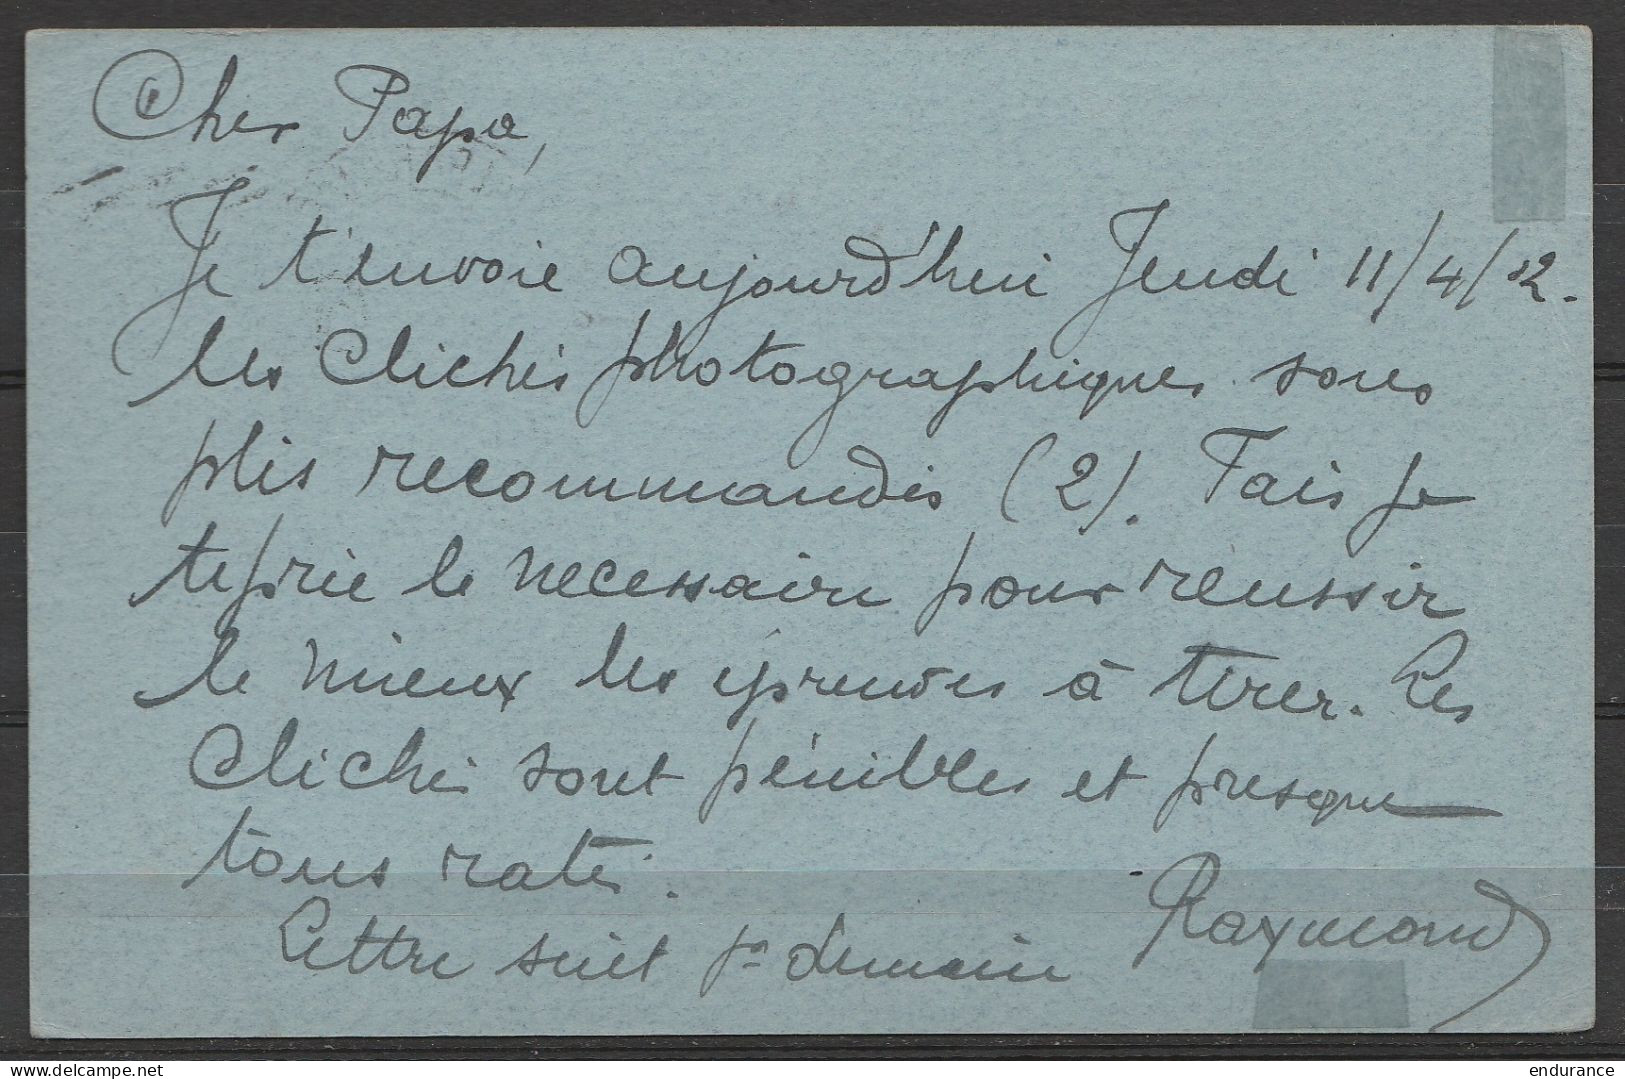 Cher Papa,
Je t'envoie aujourd'hui Jeudi 11/4/12.
les clichés photographiques sous
plis recommandés (2). Fais je
te prie le necessaire pour réussir
le mieux les épreuves à tirer. Les
clichés sont pénibles et presque
tous ratés.
Raymond
Lettre suit pr demain
delcampe.net
endurance